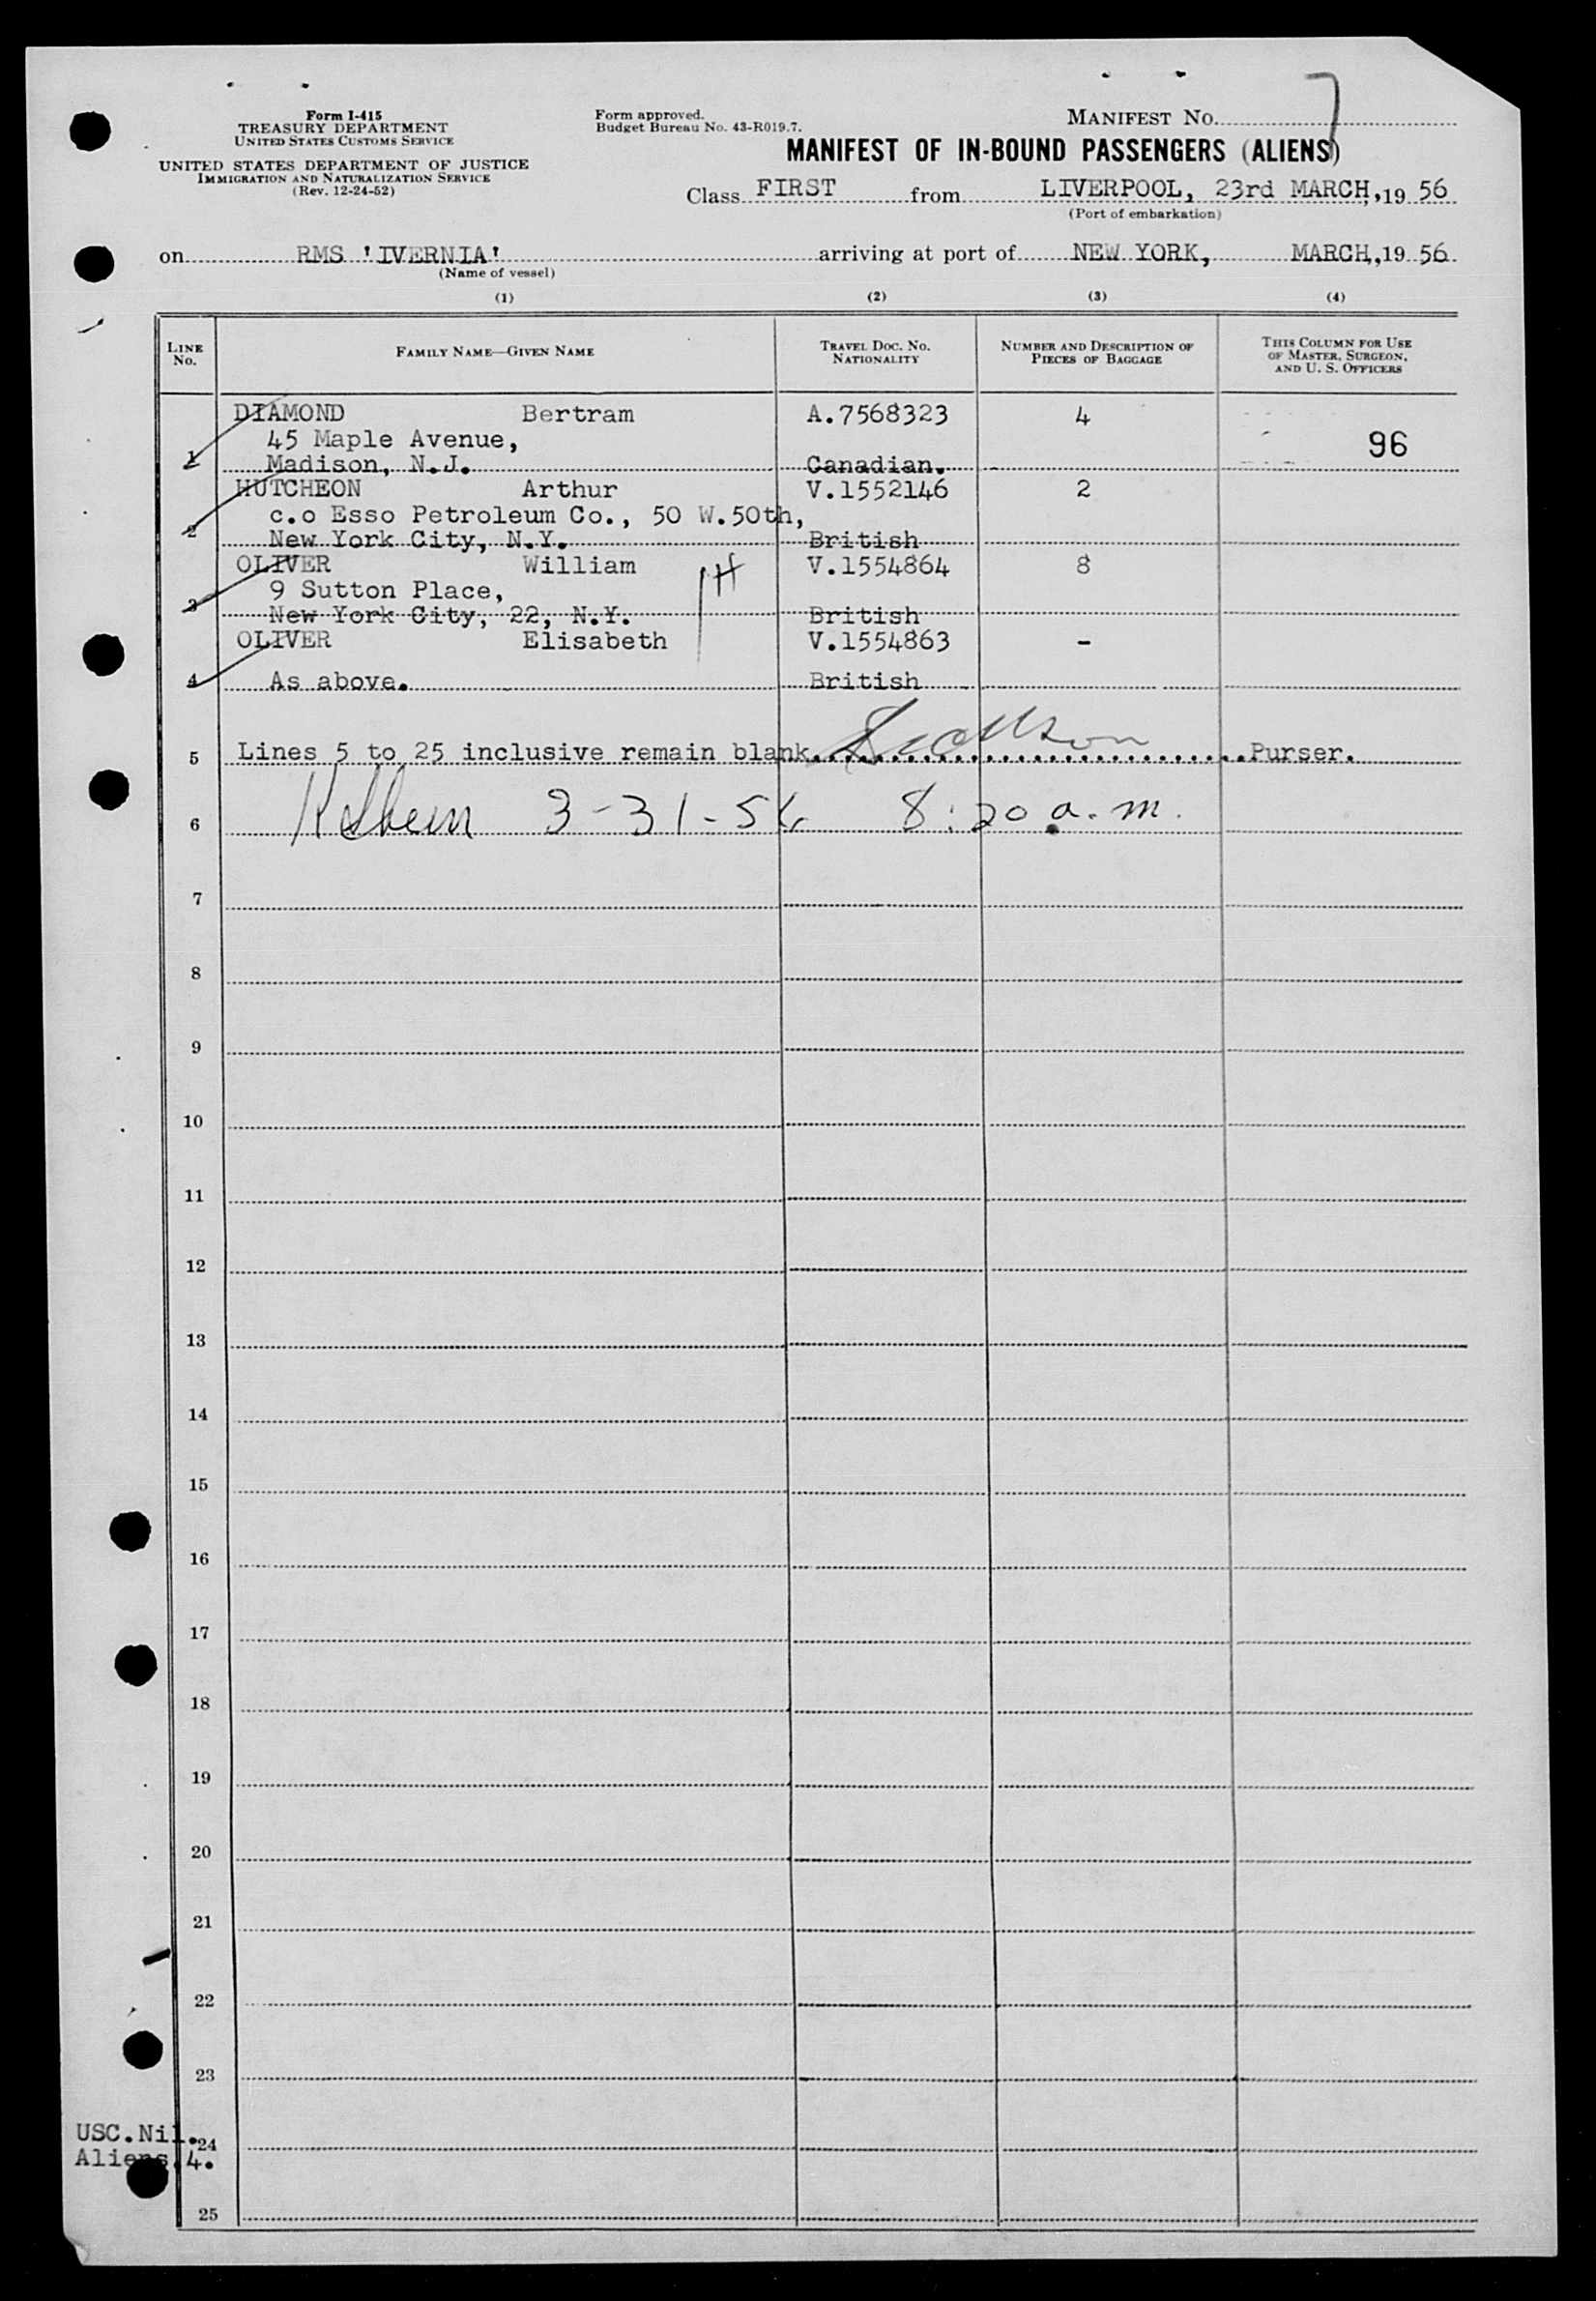 Form I-415
TREASURY DEPARTMENT
UNITED STATES CUSTOMS SERVICE
UNITED STATES DEPARTMENT OF JUSTICE
IMMIGRATION AND NATURALIZATION SERVICE
(Rev. 12-24-52)
Form approved.
Budget Bureau No. 43-R019.7.
MANIFEST No. 7
MANIFEST OF IN-BOUND PASSENGERS (ALIENS)
Class FIRST from LIVERPOOL, 23rd MARCH, 19 56
(Port of embarkation)
on RMS 'IVERNIA' arriving at port of NEW YORK, MARCH, 19 56
(Name of vessel)
(1) (2) (3) (4)
LINE No. FAMILY NAME—GIVEN NAME TRAVEL DOC. NO. NATIONALITY NUMBER AND DESCRIPTION OF PIECES OF BAGGAGE THIS COLUMN FOR USE OF MASTER, SURGEON, AND U. S. OFFICERS
DIAMOND Bertram A.7568323 4
45 Maple Avenue, 96
1 Madison, N.J. Canadian.
HUTCHEON Arthur V.1552146 2
c.o Esso Petroleum Co., 50 W.50th,
2 New York City, N.Y. British
OLIVER William V.1554864 8
9 Sutton Place,
3 New York City, 22, N.Y. British
OLIVER Elisabeth V.1554863 -
4 As above. British
5 Lines 5 to 25 inclusive remain blank. Purser.
6 3-31-56 8:20 a.m.
7
8
9
10
11
12
13
14
15
16
17
18
19
20
21
22
23
USC.Nil.
24
Aliens.4.
25